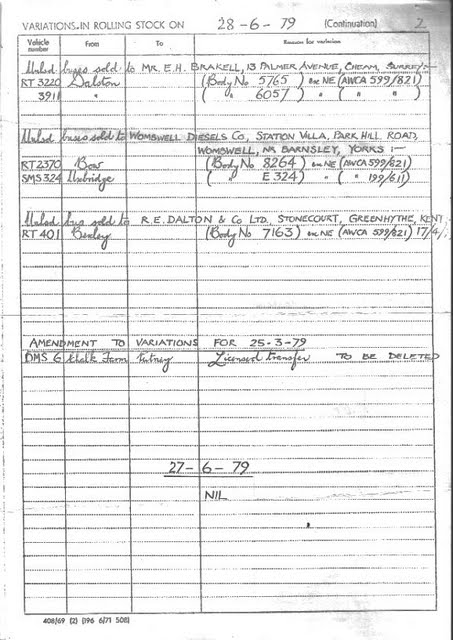 VARIATIONS IN ROLLING STOCK ON 28-6-79 (Continuation) 2
Vehicle number From To Reason for variation
Unlsd buses sold to MR. E.H. BRAKELL, 13 PALMER AVENUE, CHEAM, SURREY:-
RT 3220 Dalston (Body No 5765) on NE (AWCA 599/821)
3911 " ( " 6057 ) " ( " " )
Unlsd buses sold to WOMBWELL DIESELS Co., STATION VILLA, PARK HILL ROAD,
WOMBWELL, NR BARNSLEY, YORKS :-
RT2370 Bow (Body No 8264) on NE (AWCA 599/821)
SMS 324 Uxbridge ( " E 324 ) " ( " 199/611)
Unlsd bus sold to R.E. DALTON & Co LTD. STONECOURT, GREENHYTHE, KENT
RT 401 Bexley (Body No 7163) on NE (AWCA 599/821) 17/4
AMENDMENT TO VARIATIONS FOR 25-3-79
DMS 6 Chalk Farm Putney Licensed transfer TO BE DELETED
27-6-79
NIL
408/69 (2) (196 6/71 508)